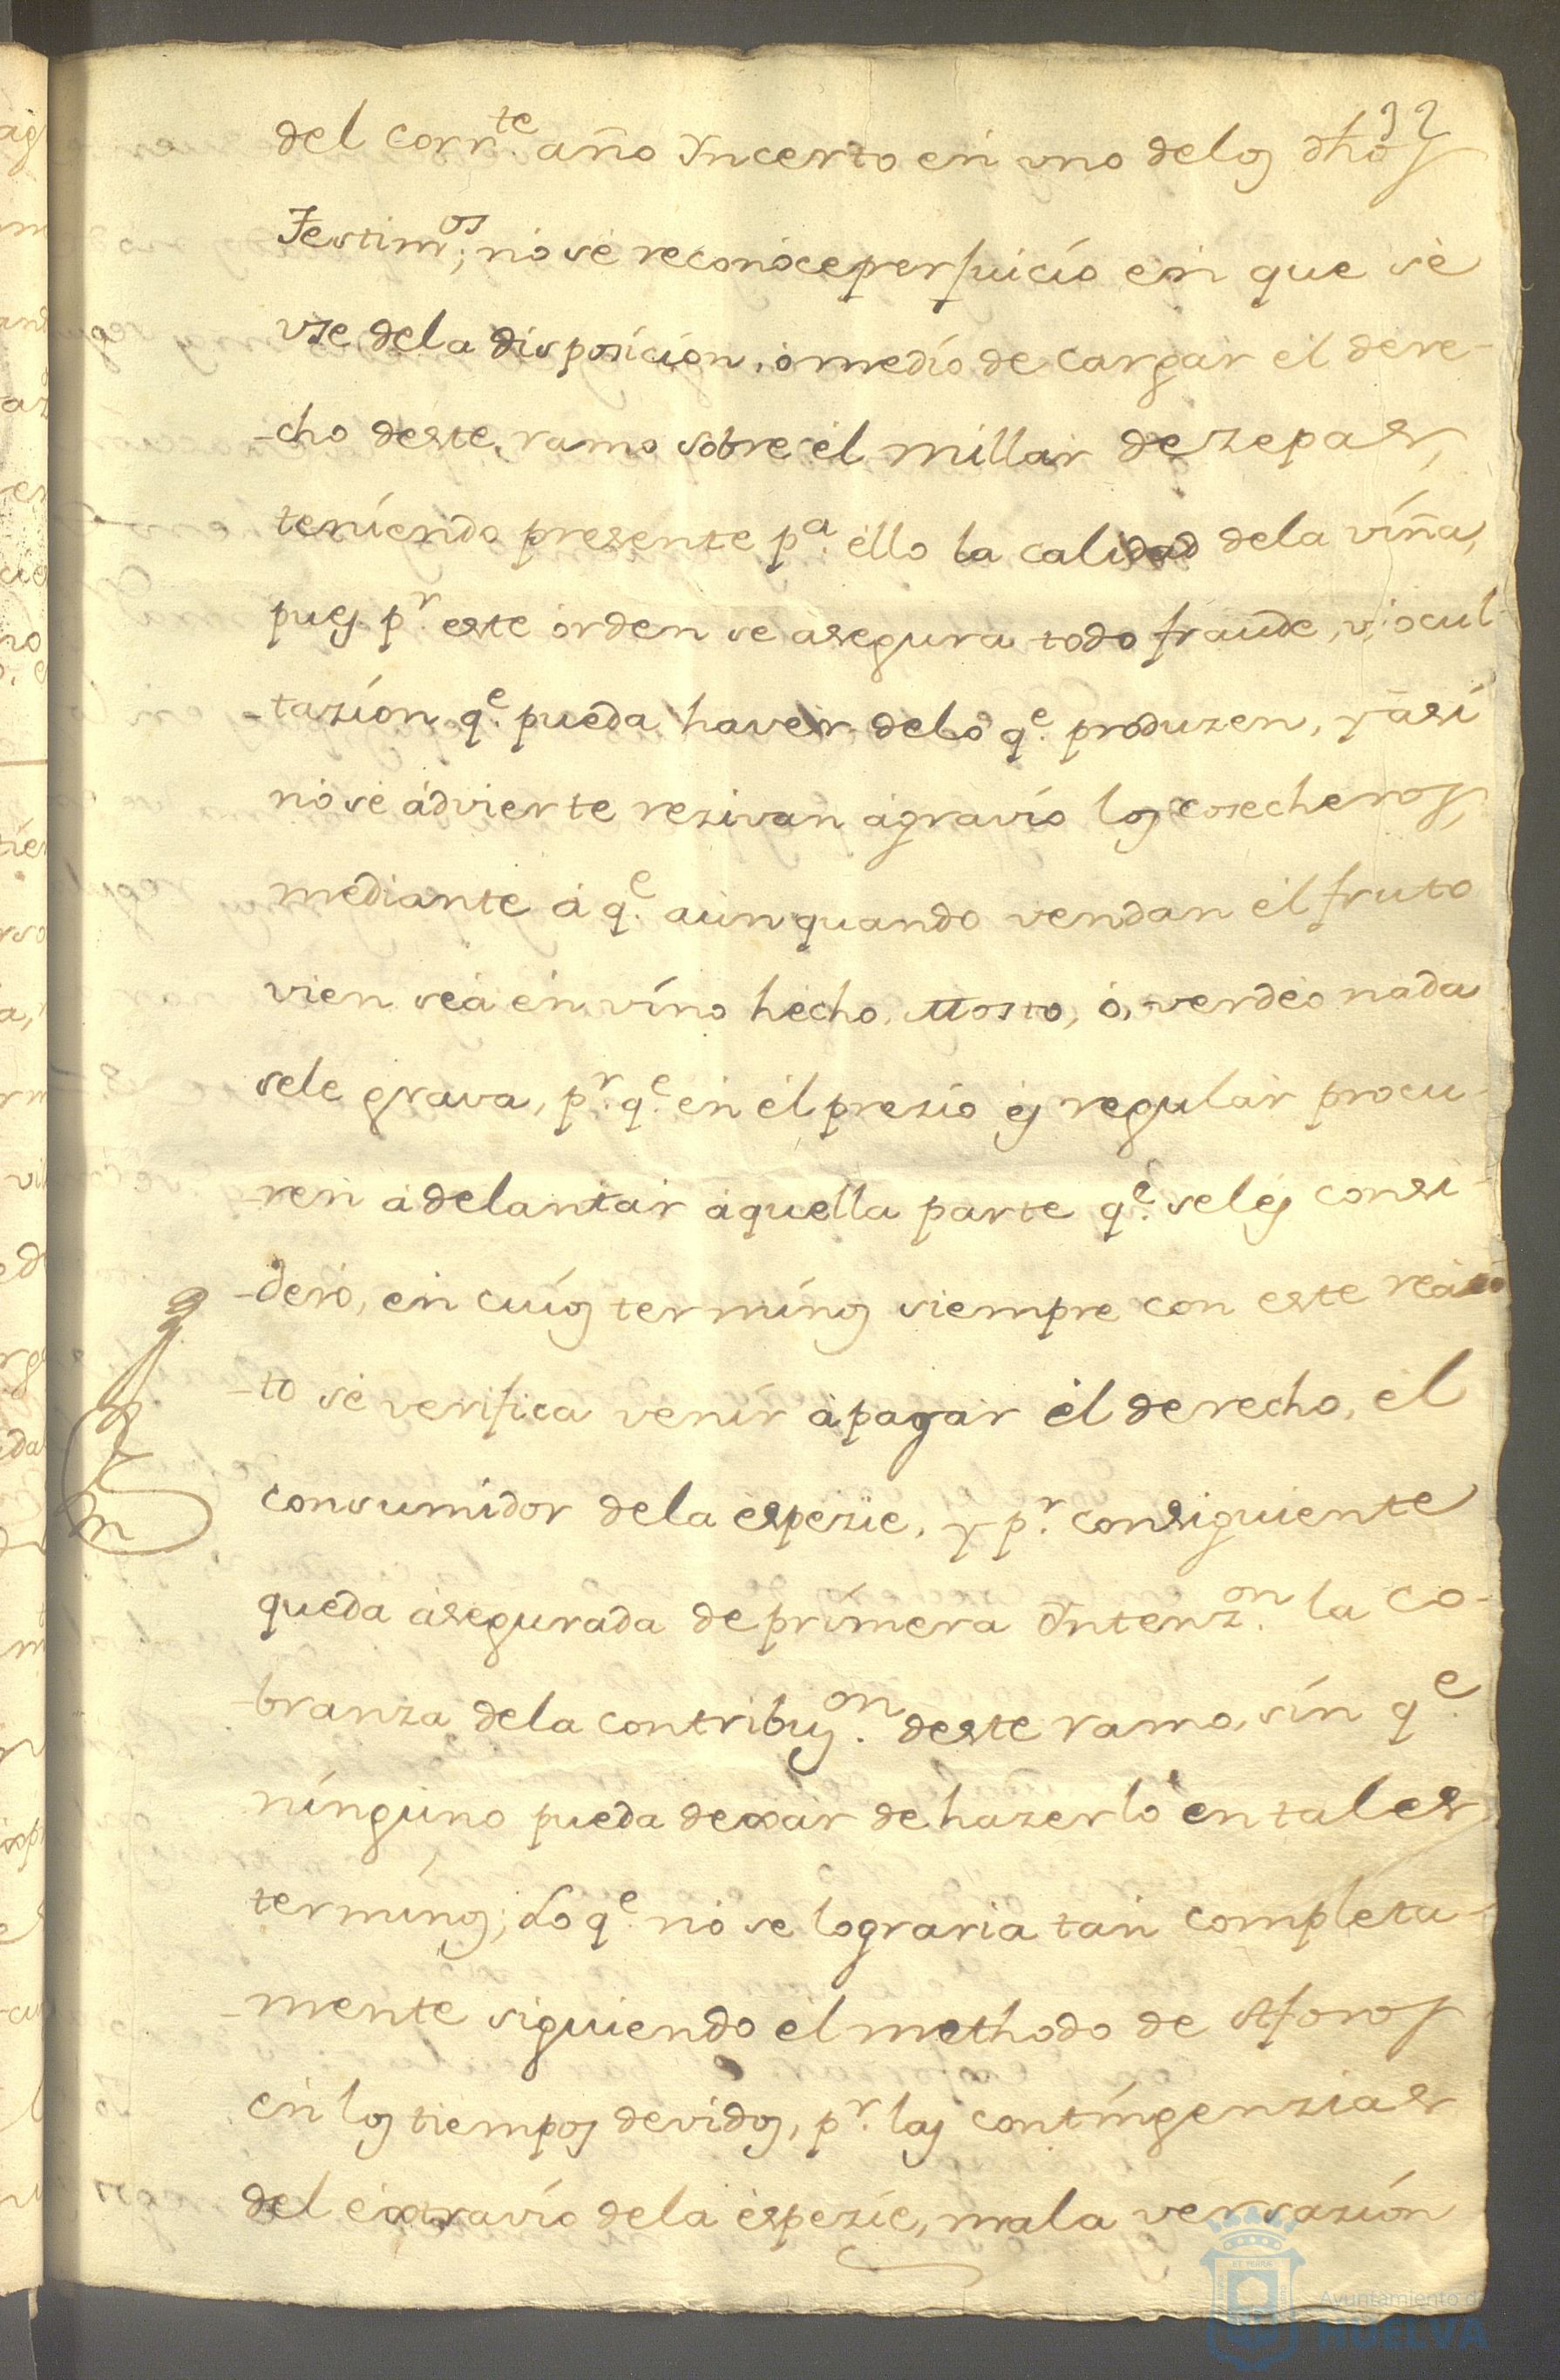 32
del corr.te año Yncerto en vno delos dhos
Testim.os; nose reconoce perjuicio en que se
vse dela disposicion, o medio de cargar el dere-
-cho deste ramo sobre el millar de zepas,
teniendo presente p.a ello la calidad dela viña,
pues p.r este orden se asegura todo fraude, v, ocul-
-tazion q.e pueda haver delo q.e produzen, y asi
nose advierte rezivan agravio los cosecheros,
mediante a q.e aun quando vendan el fruto
vien sea en vino hecho, Mosto, o, verdeo nada
sele grava, p.r q.e en el prezio es regular procu-
-ren adelantar aquella parte q.e seles consi-
-dero, en cuios terminos siempre con este
-to se verifica venir apagar el derecho, el
consumidor dela espezie, y p.r consiguiente
queda asegurada de primera Yntenz.on la co-
-branza dela contribuz.on deste ramo, sin q.e
ninguno pueda dexar de hazerlo en tales
terminos; Lo q.e no se lograria tan completa-
-mente siguiendo el methodo de Aforos
en los tiempos devidos, p.r las contingenzias
del extravio dela espezie, mala versazion
Ayuntamiento de
HUELVA